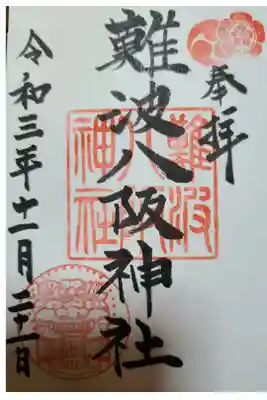 奉拝
難波八阪神社
難波
八阪
神社
令和三年十一月二十一日